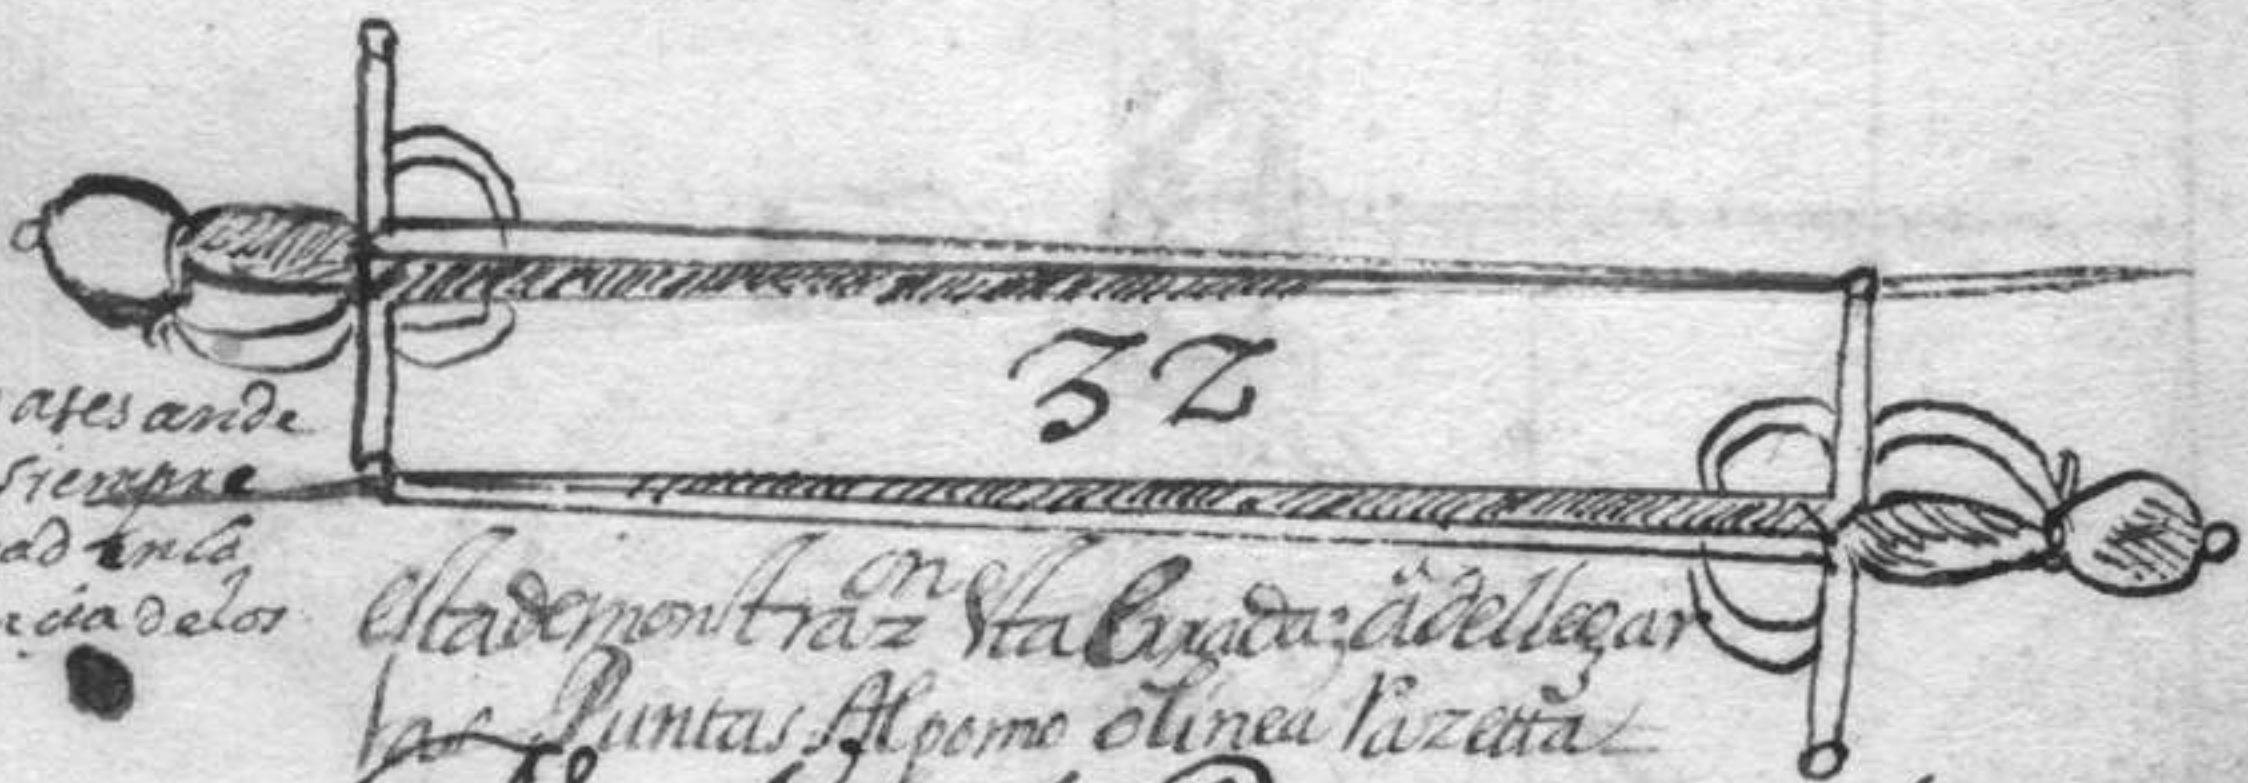 32
ases ande
siempre
ad en la
ncia de los
esta demonstraz^on esta Errada; a de llegar
las Puntas Al pomo o linea